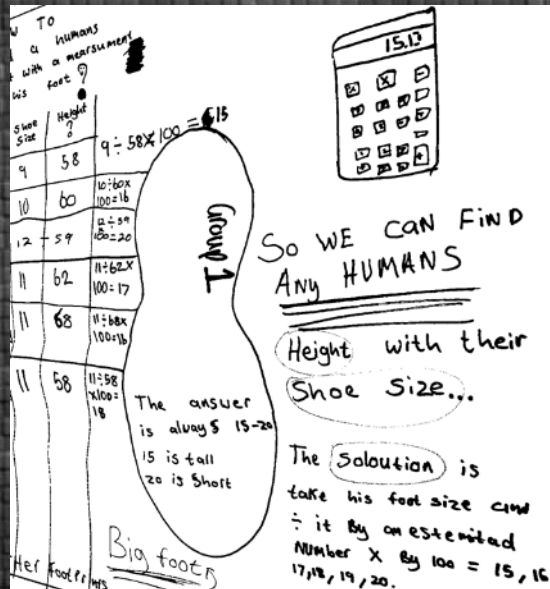 W TO
a humans
t with a mearsument
his foot ?
Shoe Size
Height ?
9 ÷ 58 × 100 = 15
9
58
10
60
10÷60×
100=16
12
59
12÷59
100=20
11
62
11÷62×
100=17
11
68
11÷68×
100=16
11
58
11÷58
×100=
18
Her
Footpr
Big foot
Group 1
The answer
is always 15-20
15 is tall
20 is Short
15.13
So WE CAN FIND
Any HUMANS
Height with their
Shoe Size...
The Soloution is
take his foot size and
÷ it By an estemitad
Number X By 100 = 15, 16
17, 18, 19, 20.